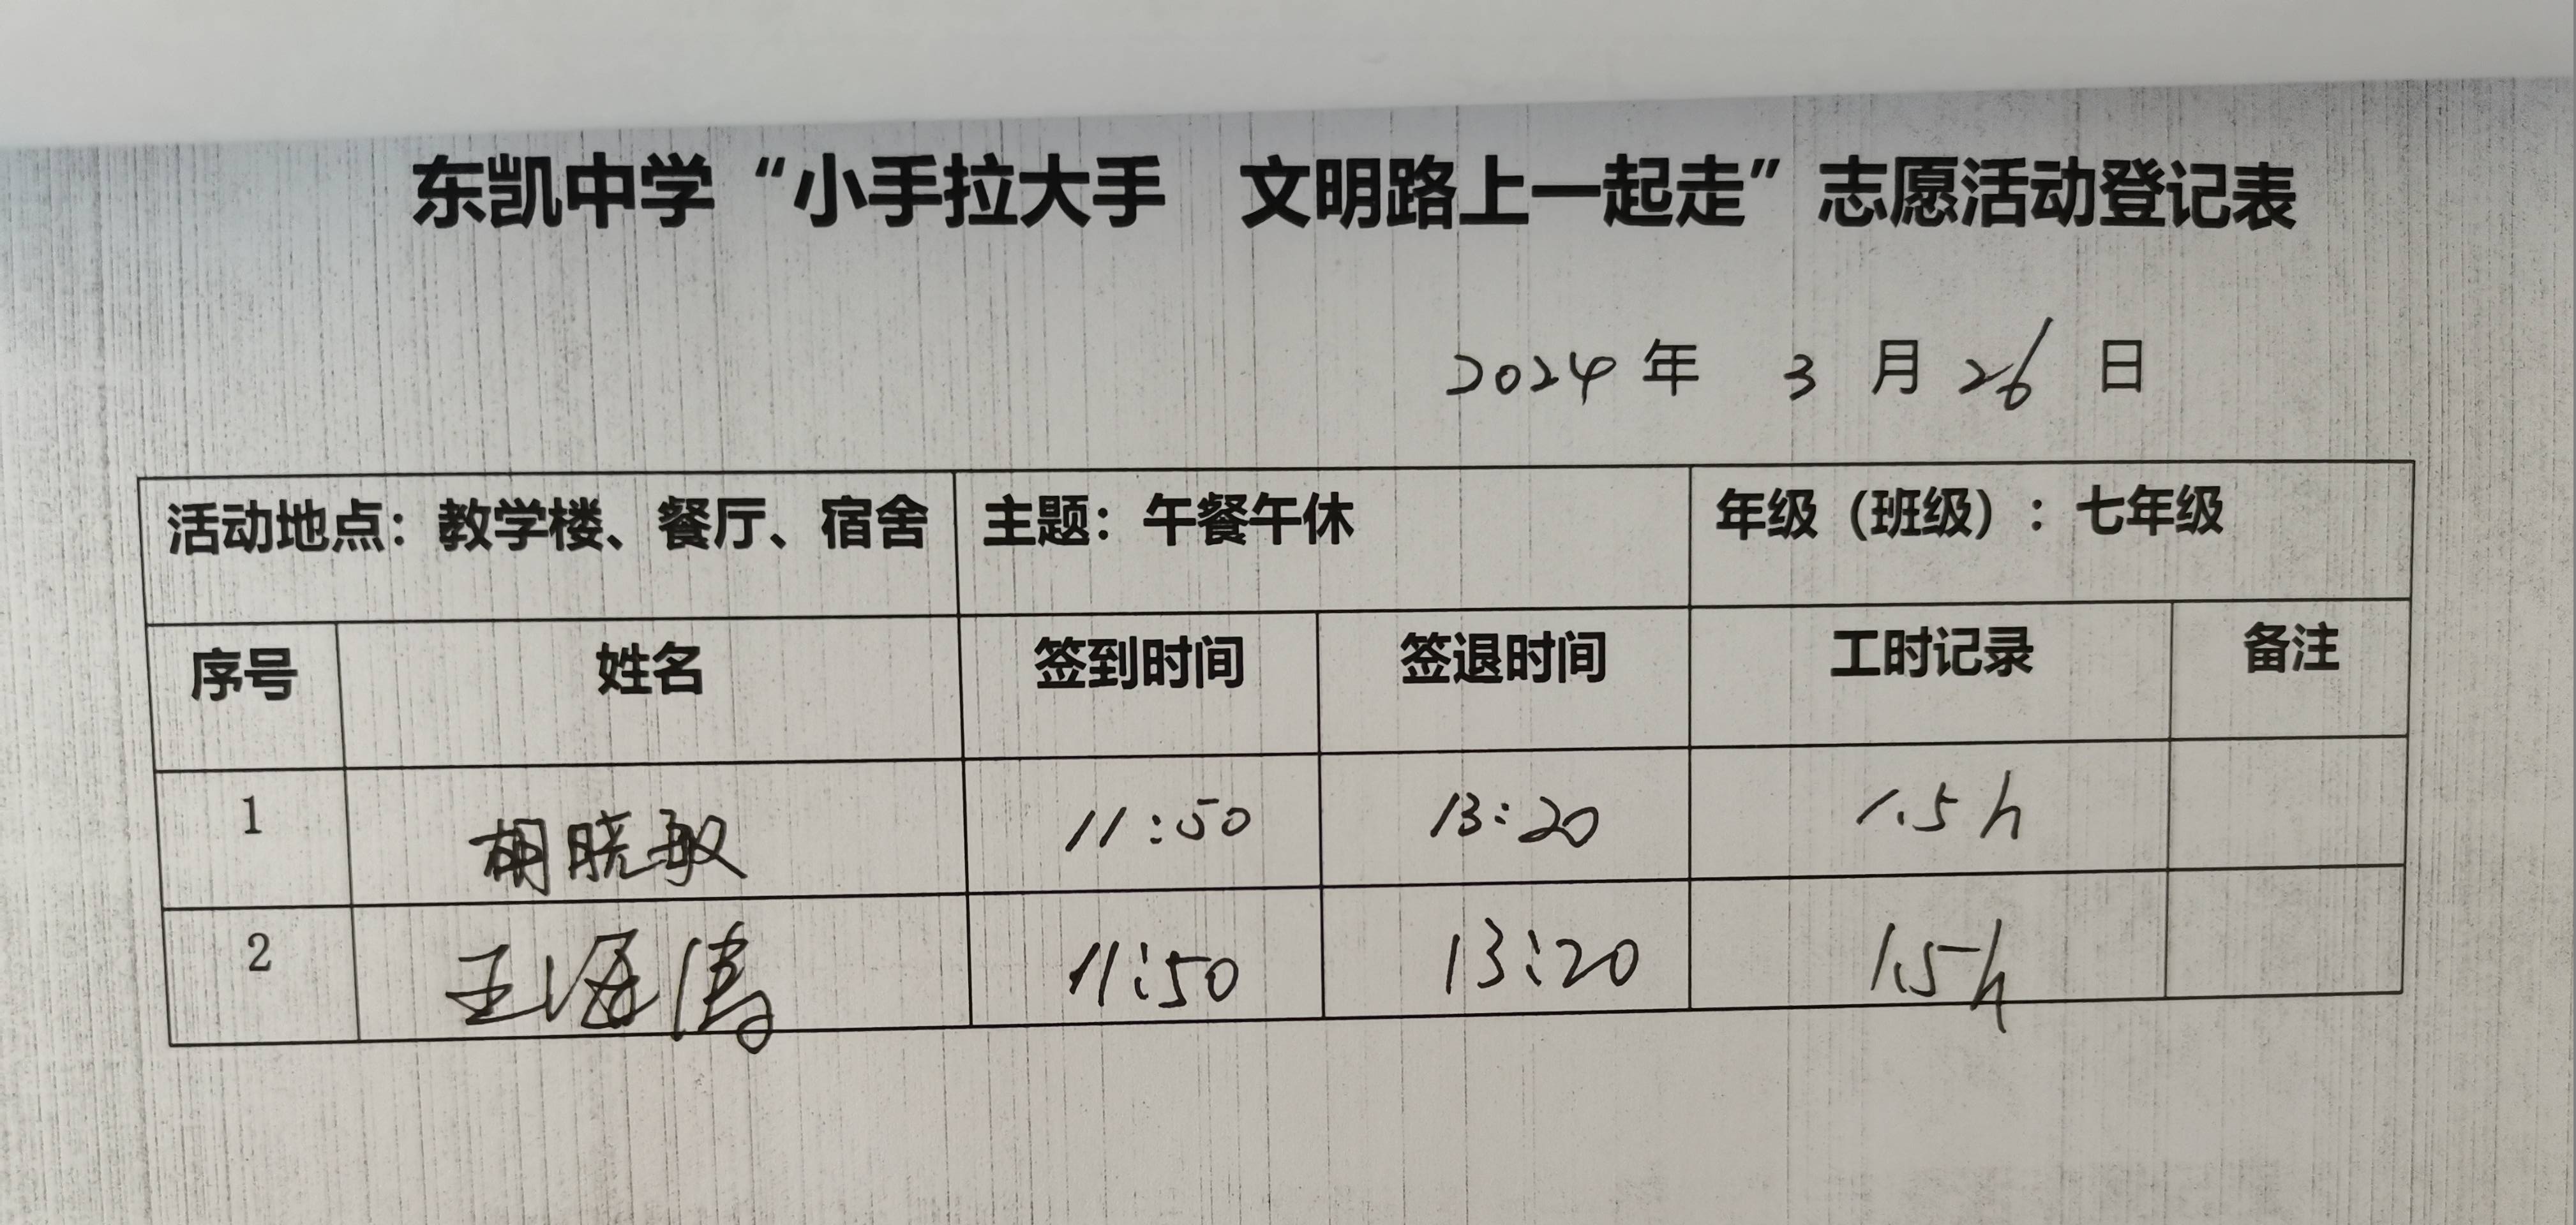 东凯中学“小手拉大手 文明路上一起走”志愿活动登记表
2024 年 3 月 26 日
活动地点：教学楼、餐厅、宿舍 主题：午餐午休 年级（班级）：七年级
序号 姓名 签到时间 签退时间 工时记录 备注
1 胡晓敏 11:50 13:20 1.5h
2 王海涛 11:50 13:20 1.5h